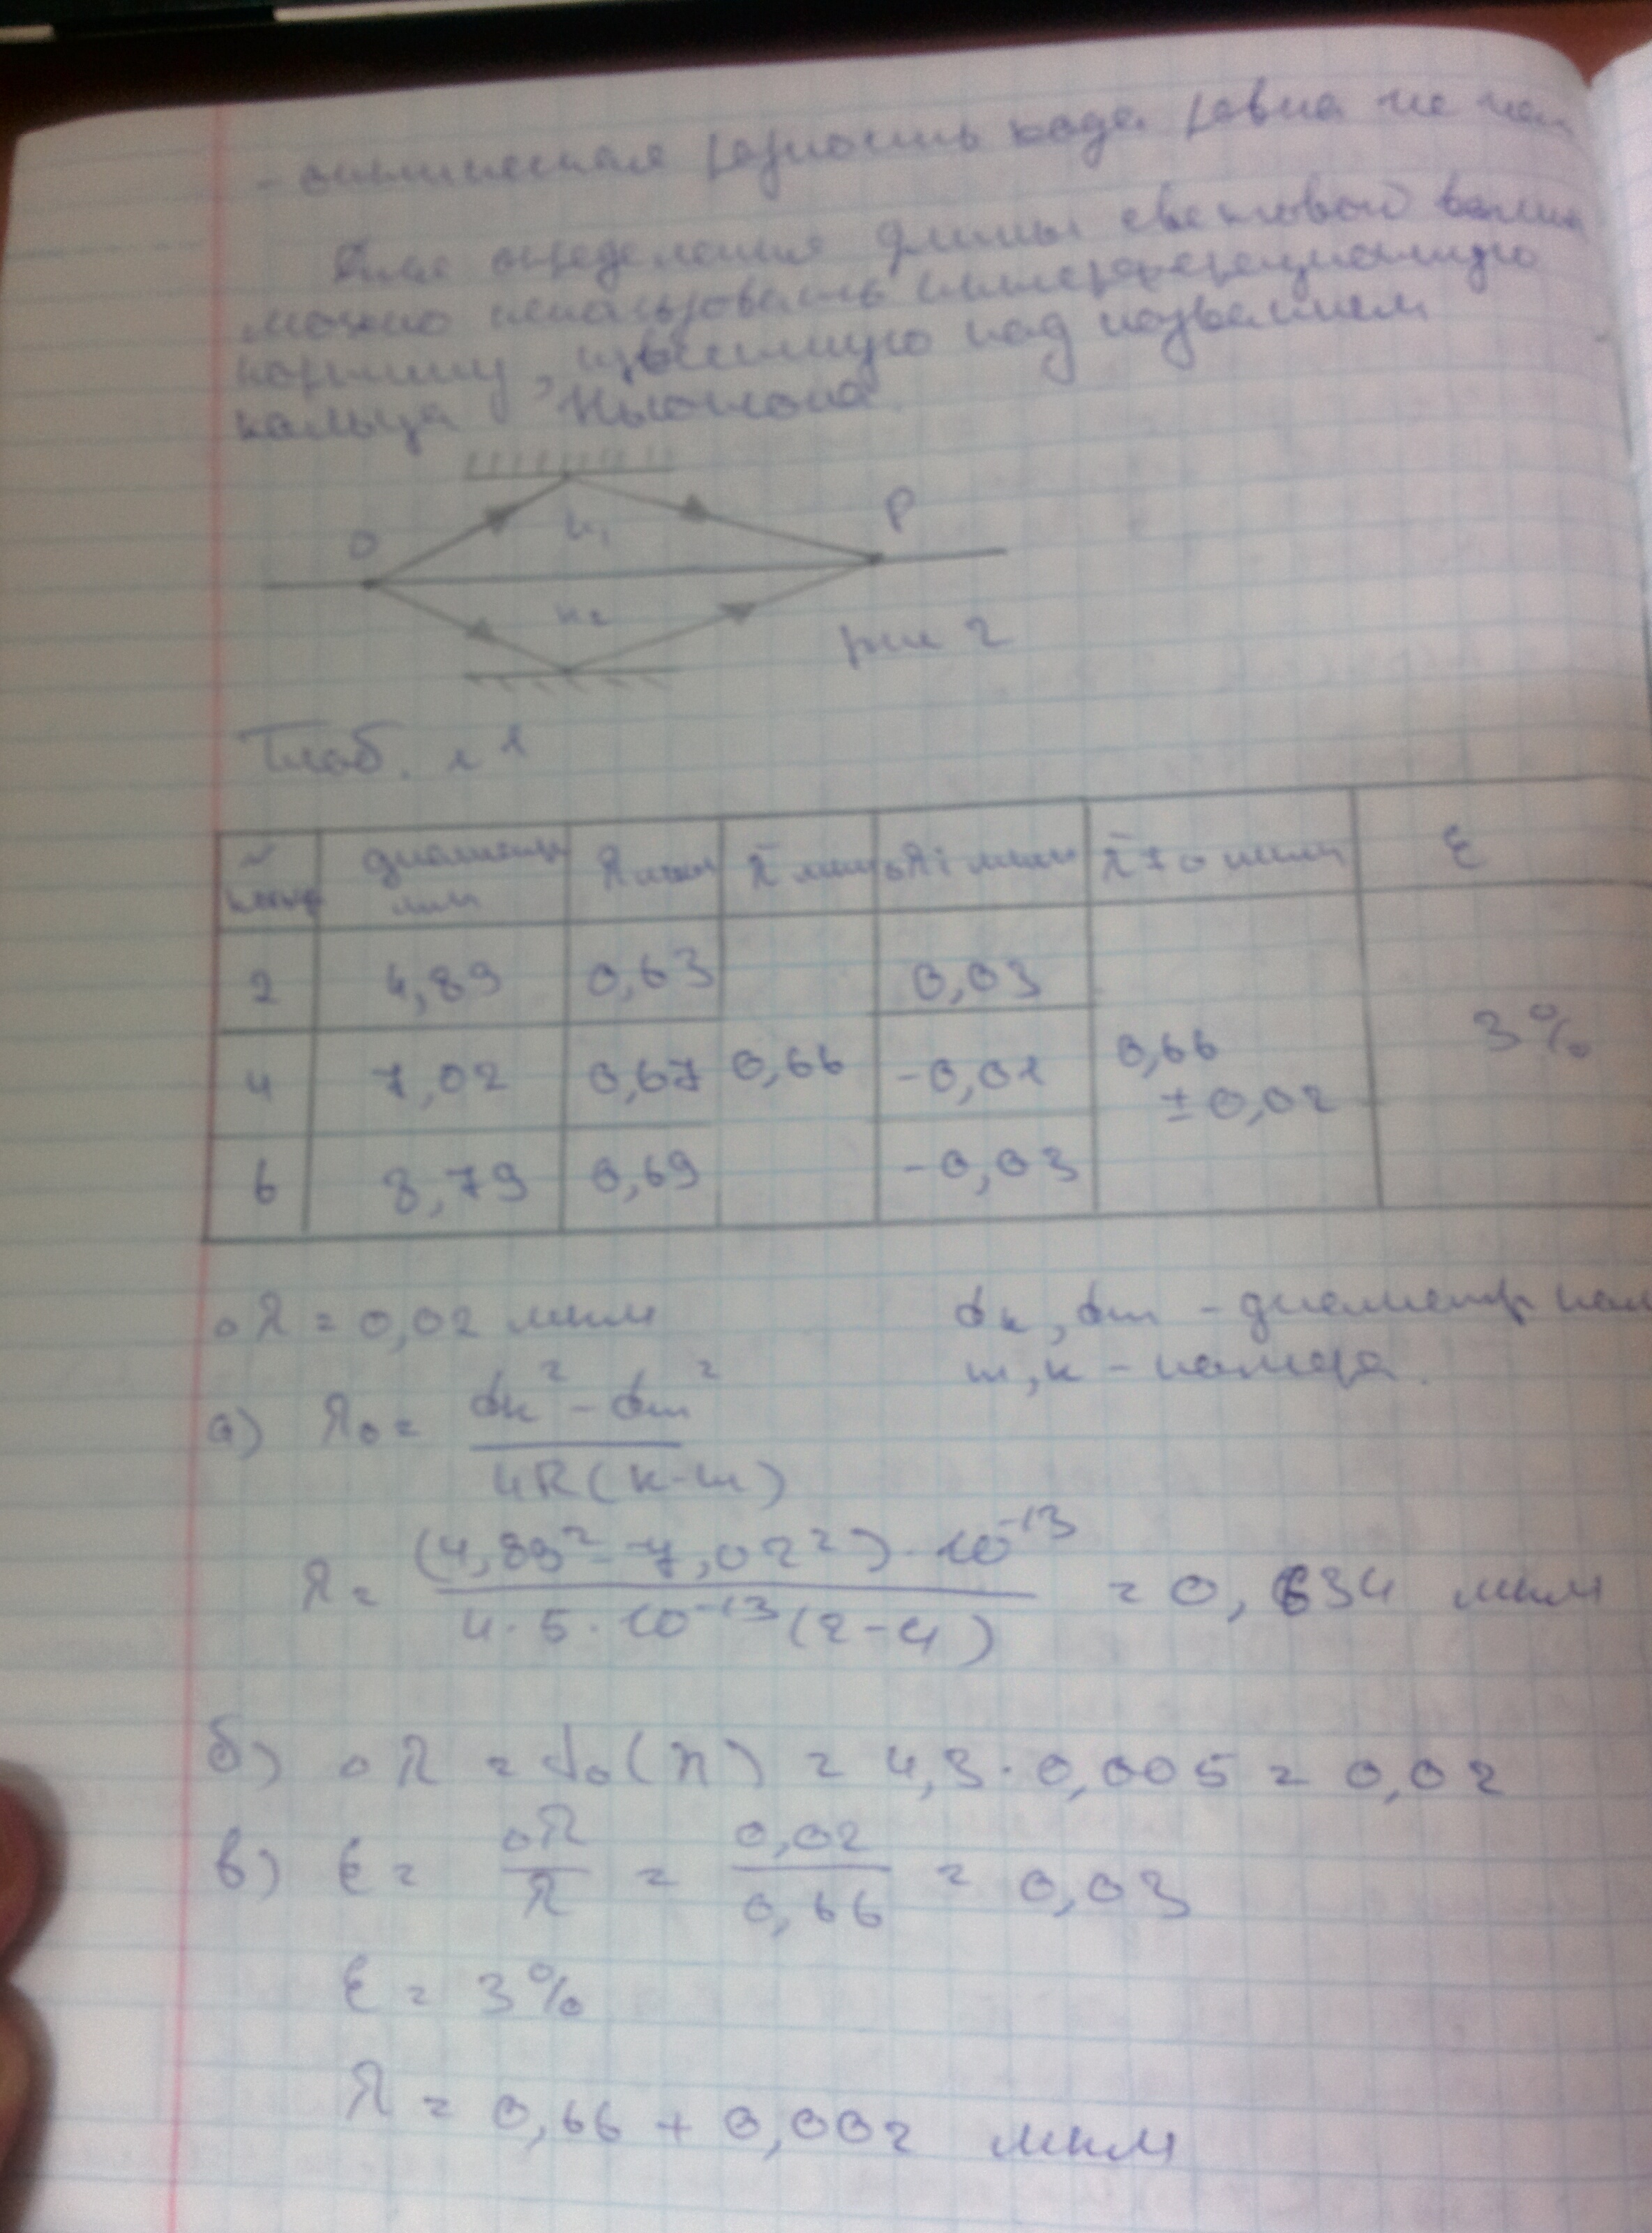 - оптическая разность хода равна не чет
Для определения длины световой волны
можно использовать интерференционную
картину, известную под названием
кольца Ньютона.
O P
n₁
n₂
рис 2
Таб. № 1
№ кольца диаметр мм λ мкм λ̄ мкм Δλi мкм λ̄ ± Δ мкм ε
2 4,89 0,63 0,03
4 7,02 0,67 0,66 -0,01 0,66 ±0,02 3%
6 8,79 0,69 -0,03
Δλ = 0,02 мкм
dк, dm - диаметр кол
m, к - кольца.
а) λ₀ = (dк² - dm²) / 4R(к-m)
λ = (4,89² - 7,02²)·10⁻¹³ / 4·5·10⁻¹³(2-4) = 0,634 мкм
б) Δλ = (n) = 4,3·0,005 = 0,02
в) ε = Δλ / λ = 0,02 / 0,66 = 0,03
ε = 3%
λ = 0,66 + 0,002 мкм